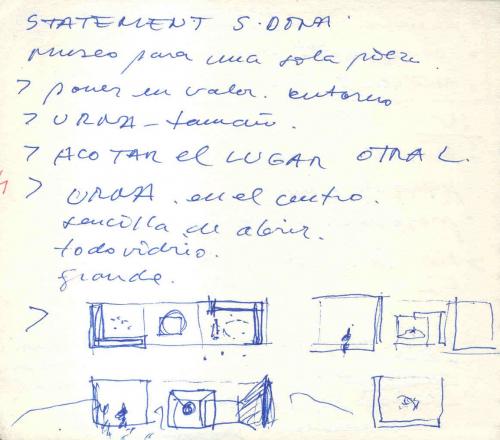 STATEMENT S. DONA
museo para una sola pieza.
> poner en valor. entorno
> URNA - tamaño.
> ACOTAR el LUGAR OTRA L.
> URNA. en el centro.
sencilla de abrir.
todo vidrio.
grande.
>